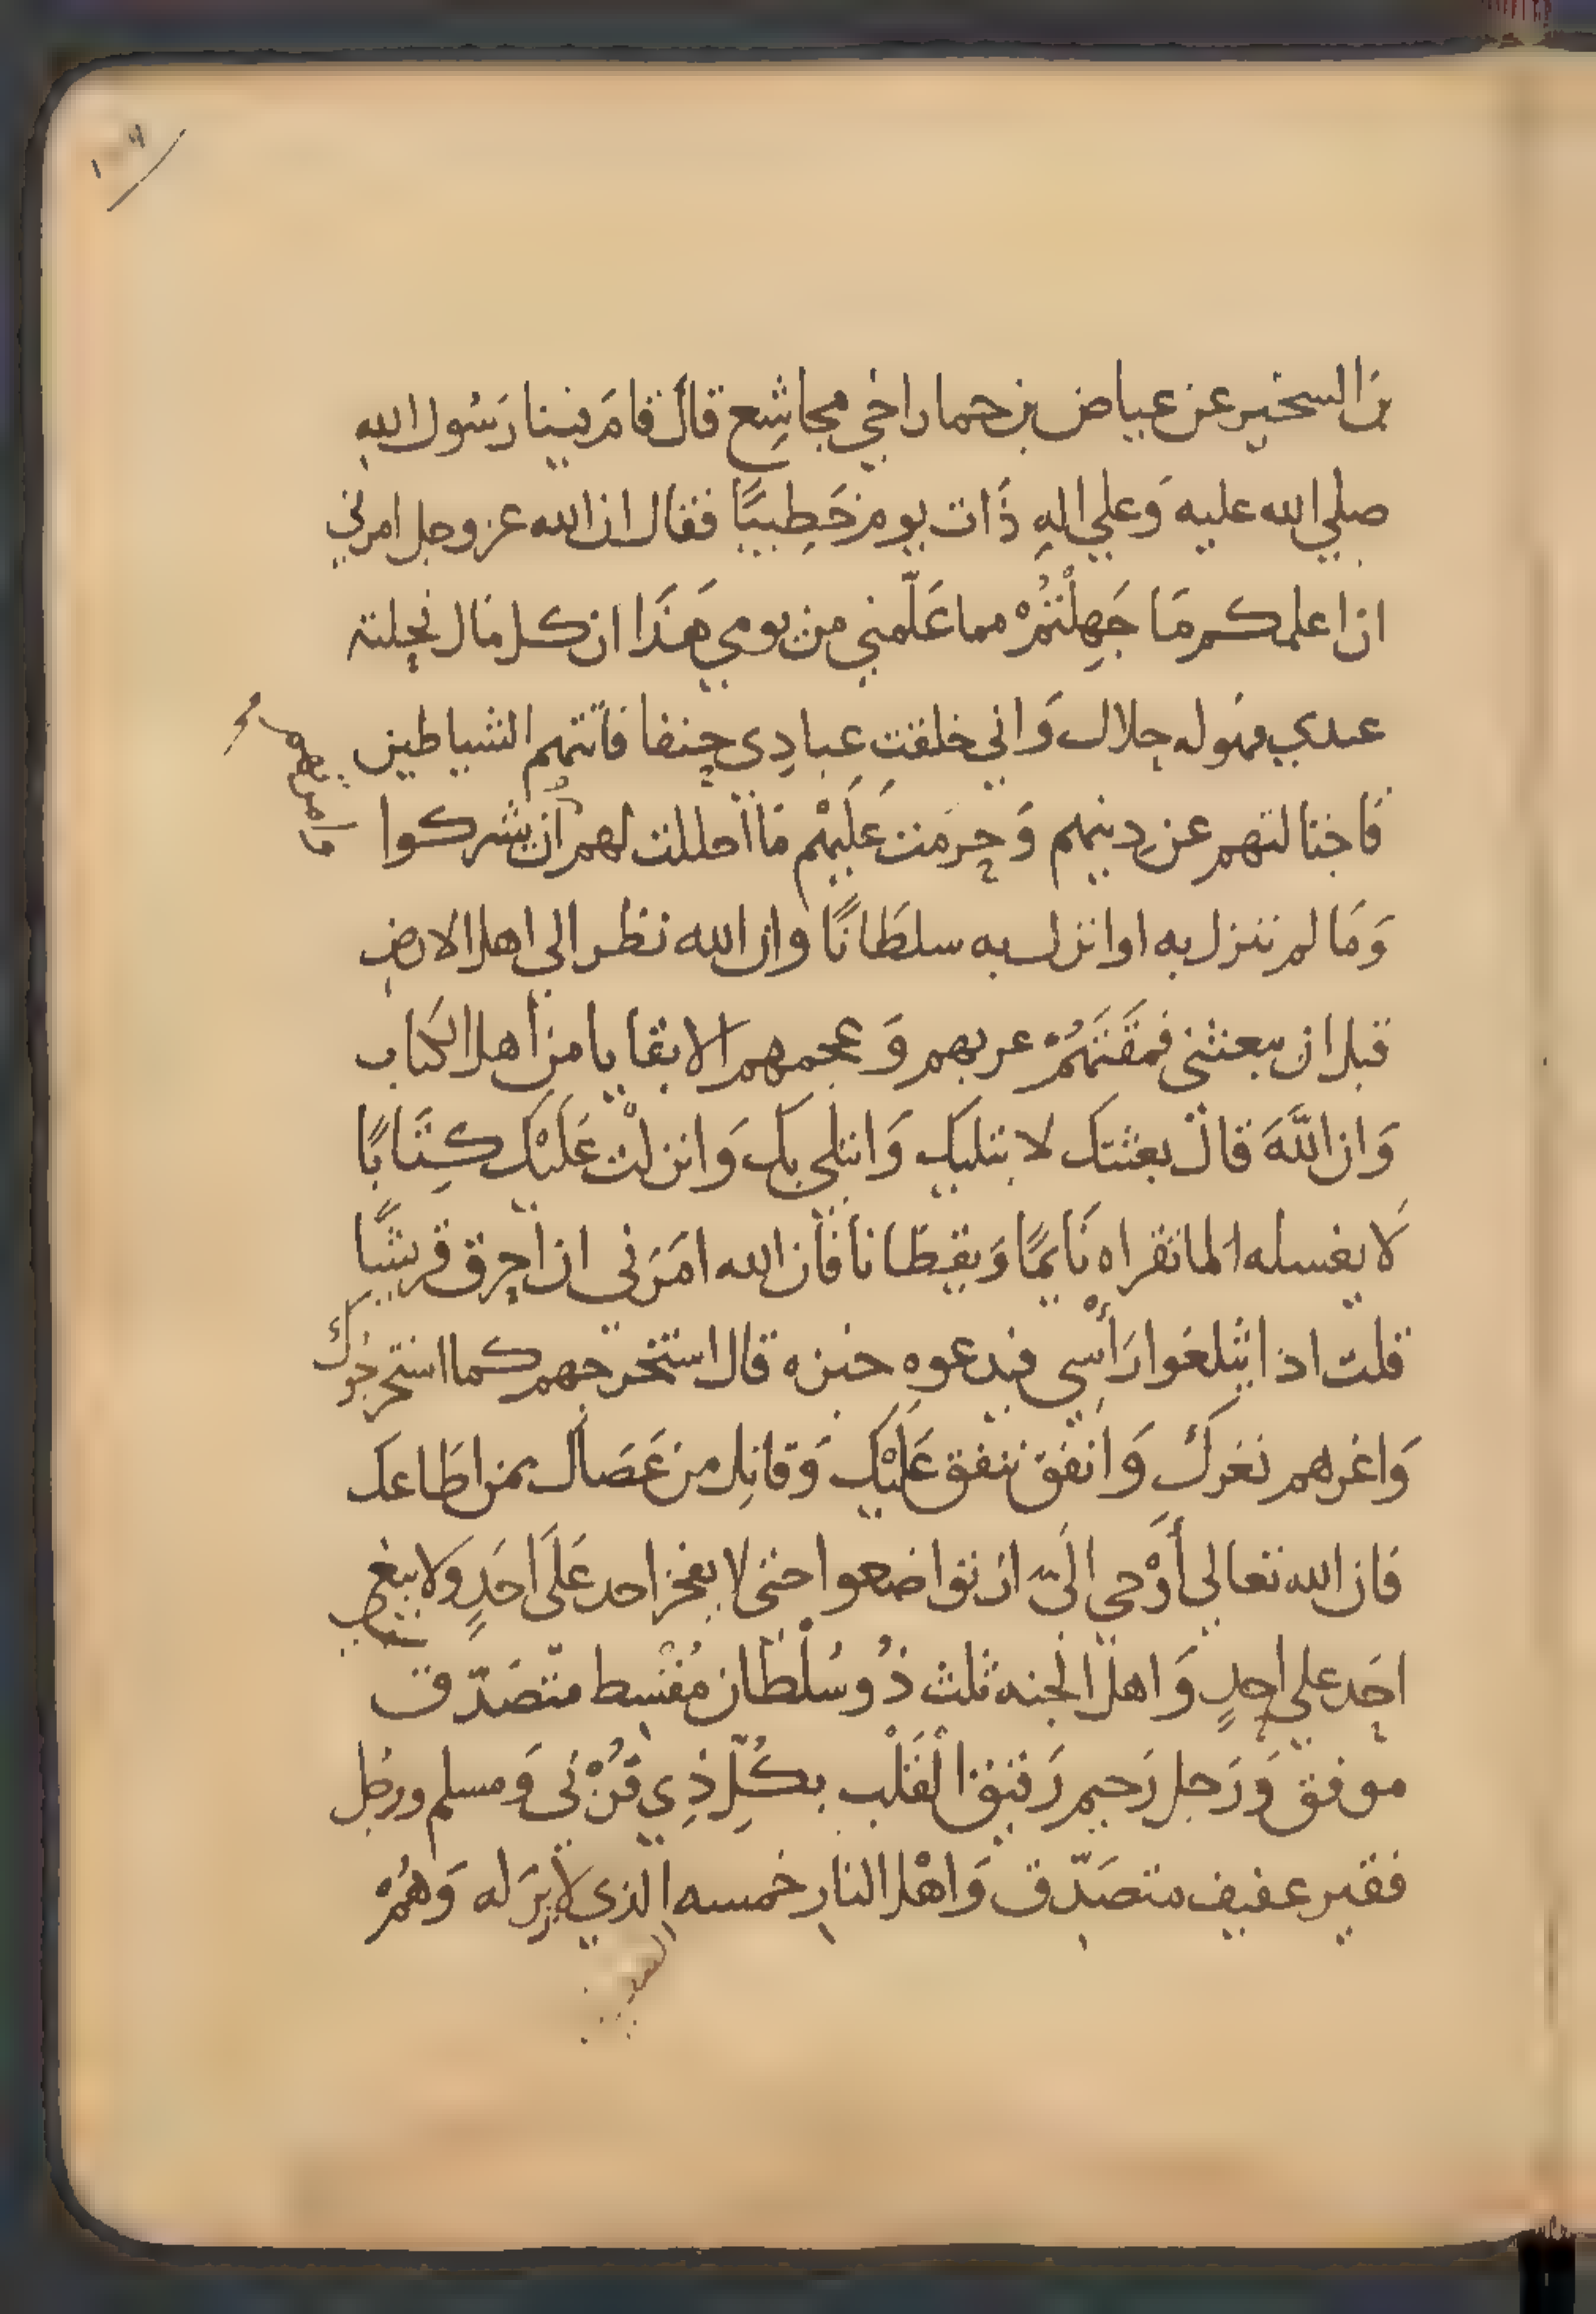 ١٠٩
بن السخير عن عياض بن حمار اخي مجاشِع قال قامَ فينا رَسُول الله
صلي الله عليه وَعلي الهِ ذَات يوم خَطِيبًا فقال ان الله عز وجل امرني
ان اعلمكم مَا جَهِلْتُمْ مما عَلّمني من يومي هَذَا ان كل مَال نحلته
عبدي فهُوله حلال وَاني خلقت عبادِي حنفا فاتتهم الشياطين
فاجتالتهم عن دِينهم وَحرمَت عَلَيْهم مَا احللت لهم ان يشركوا
وامرتهم
وَمَا لم ننزل به او انزل به سلطَانًا وان الله نظر الي اهل الارض
قبل ان يبعثني فمقَتَهُمْ عربهم وَعجمهم الا بقايا من اهل الكتاب
وَان اللَّهَ قال بعثتك لابتليك وَابتلي بك وَانزلت عَلَيْك كِتَابًا
لَا يغسله الما تقراه نَايمًا وَيقظَانا فان الله امَرَني ان احرق قريشًا
قلت اذا يثلغوا رَأْسِي فيدعوه خبزه قال استخرجهم كما استخرجُوك
وَاغزهم نغزك وَانفق ننفق عَلَيْك وَقاتِل من عَصَاك بمن اطَاعك
فان الله تعالي أَوْحي الَيّ ان تواضعوا حتى لا يفخر احد عَلَى احَدٍ وَلا يبغي
احَد علي احدٍ وَاهل الجنه ثلث ذُو سُلْطَان مُقْسِط متصَدّق
موفق وَرَجل رَحيم رَقيق القَلْب بكُلّ ذِي قُرْبَى وَمسلم ورجُل
فقير عفيف متصَدّق وَاهْل النار خمسه الذي لا زبرَ له وَهُمْ